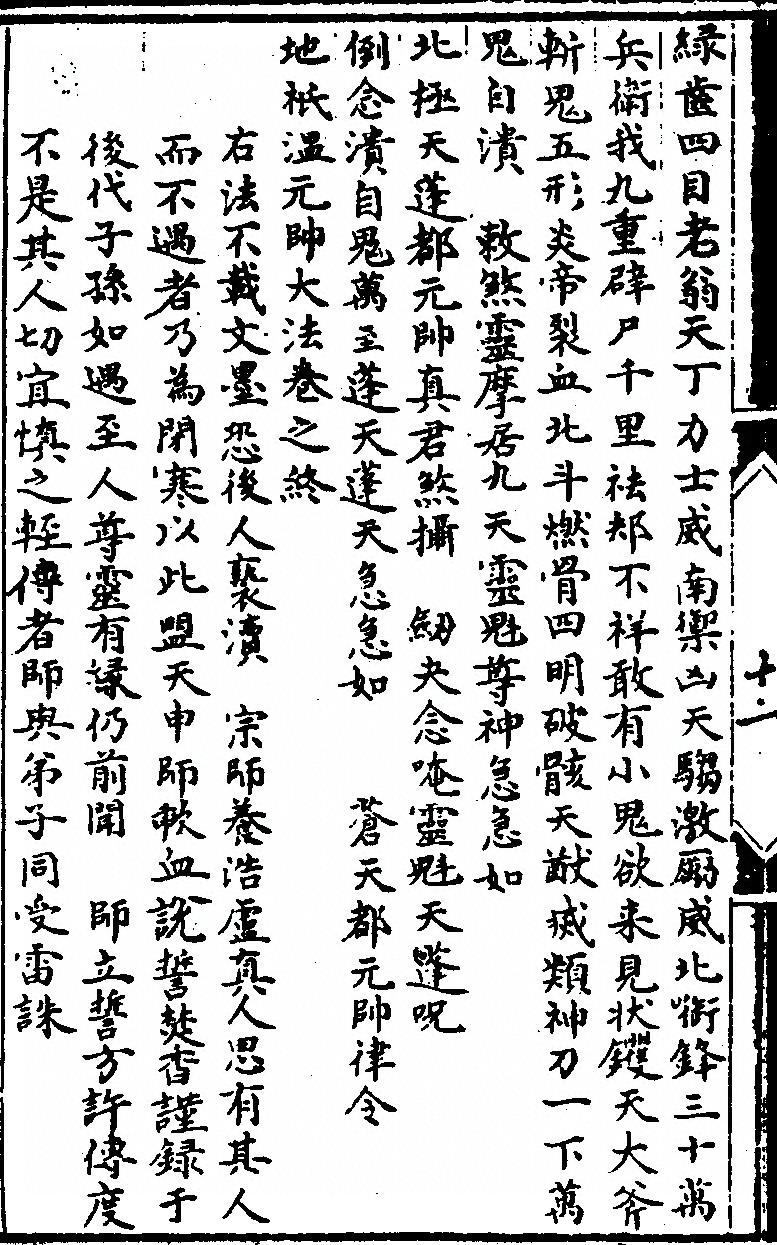 緑齒四目老翁天丁力士威南禦凶天騶激厲威北衘鋒三十萬
兵衛我九重辟尸千里祛却不祥敢有小鬼欲来見状钁天大斧
斬鬼五形炎帝裂血北斗燃骨四明破骸天猷㓕類神刀一下萬
鬼自潰 敕煞靈摩居九天靈魁尊神急急如
北極天蓬都元帥真君煞攝 劔夬念唵靈魁天蓬呪
倒念潰自鬼萬至蓬天蓬天急急如 蒼天都元帥律令
地祇温元帥大法卷之終
右法不載文墨恐後人褻瀆 宗師養浩虛真人思有其人
而不遇者乃為閉寒以此盟天申師軟血說誓焚香謹録于
後代子孫如遇至人尊靈有緣仍前聞 師立誓方許傳度
不是其人切宜慎之輕傳者師與弟子同受雷誅
十二